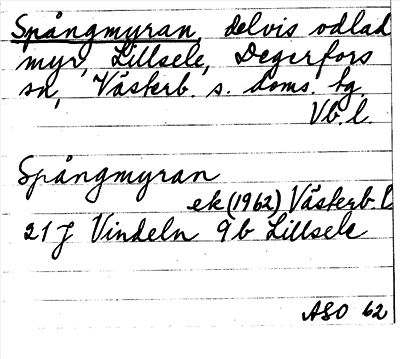 Spångmyran, delvis odlad
myr, Lillsele, Degerfors
sn, Västerb. s. doms. tg.
Vb. l.
Spångmyran
ek (1962) Västerb l
21 J Vindeln 9b Lillsele
ASO 62